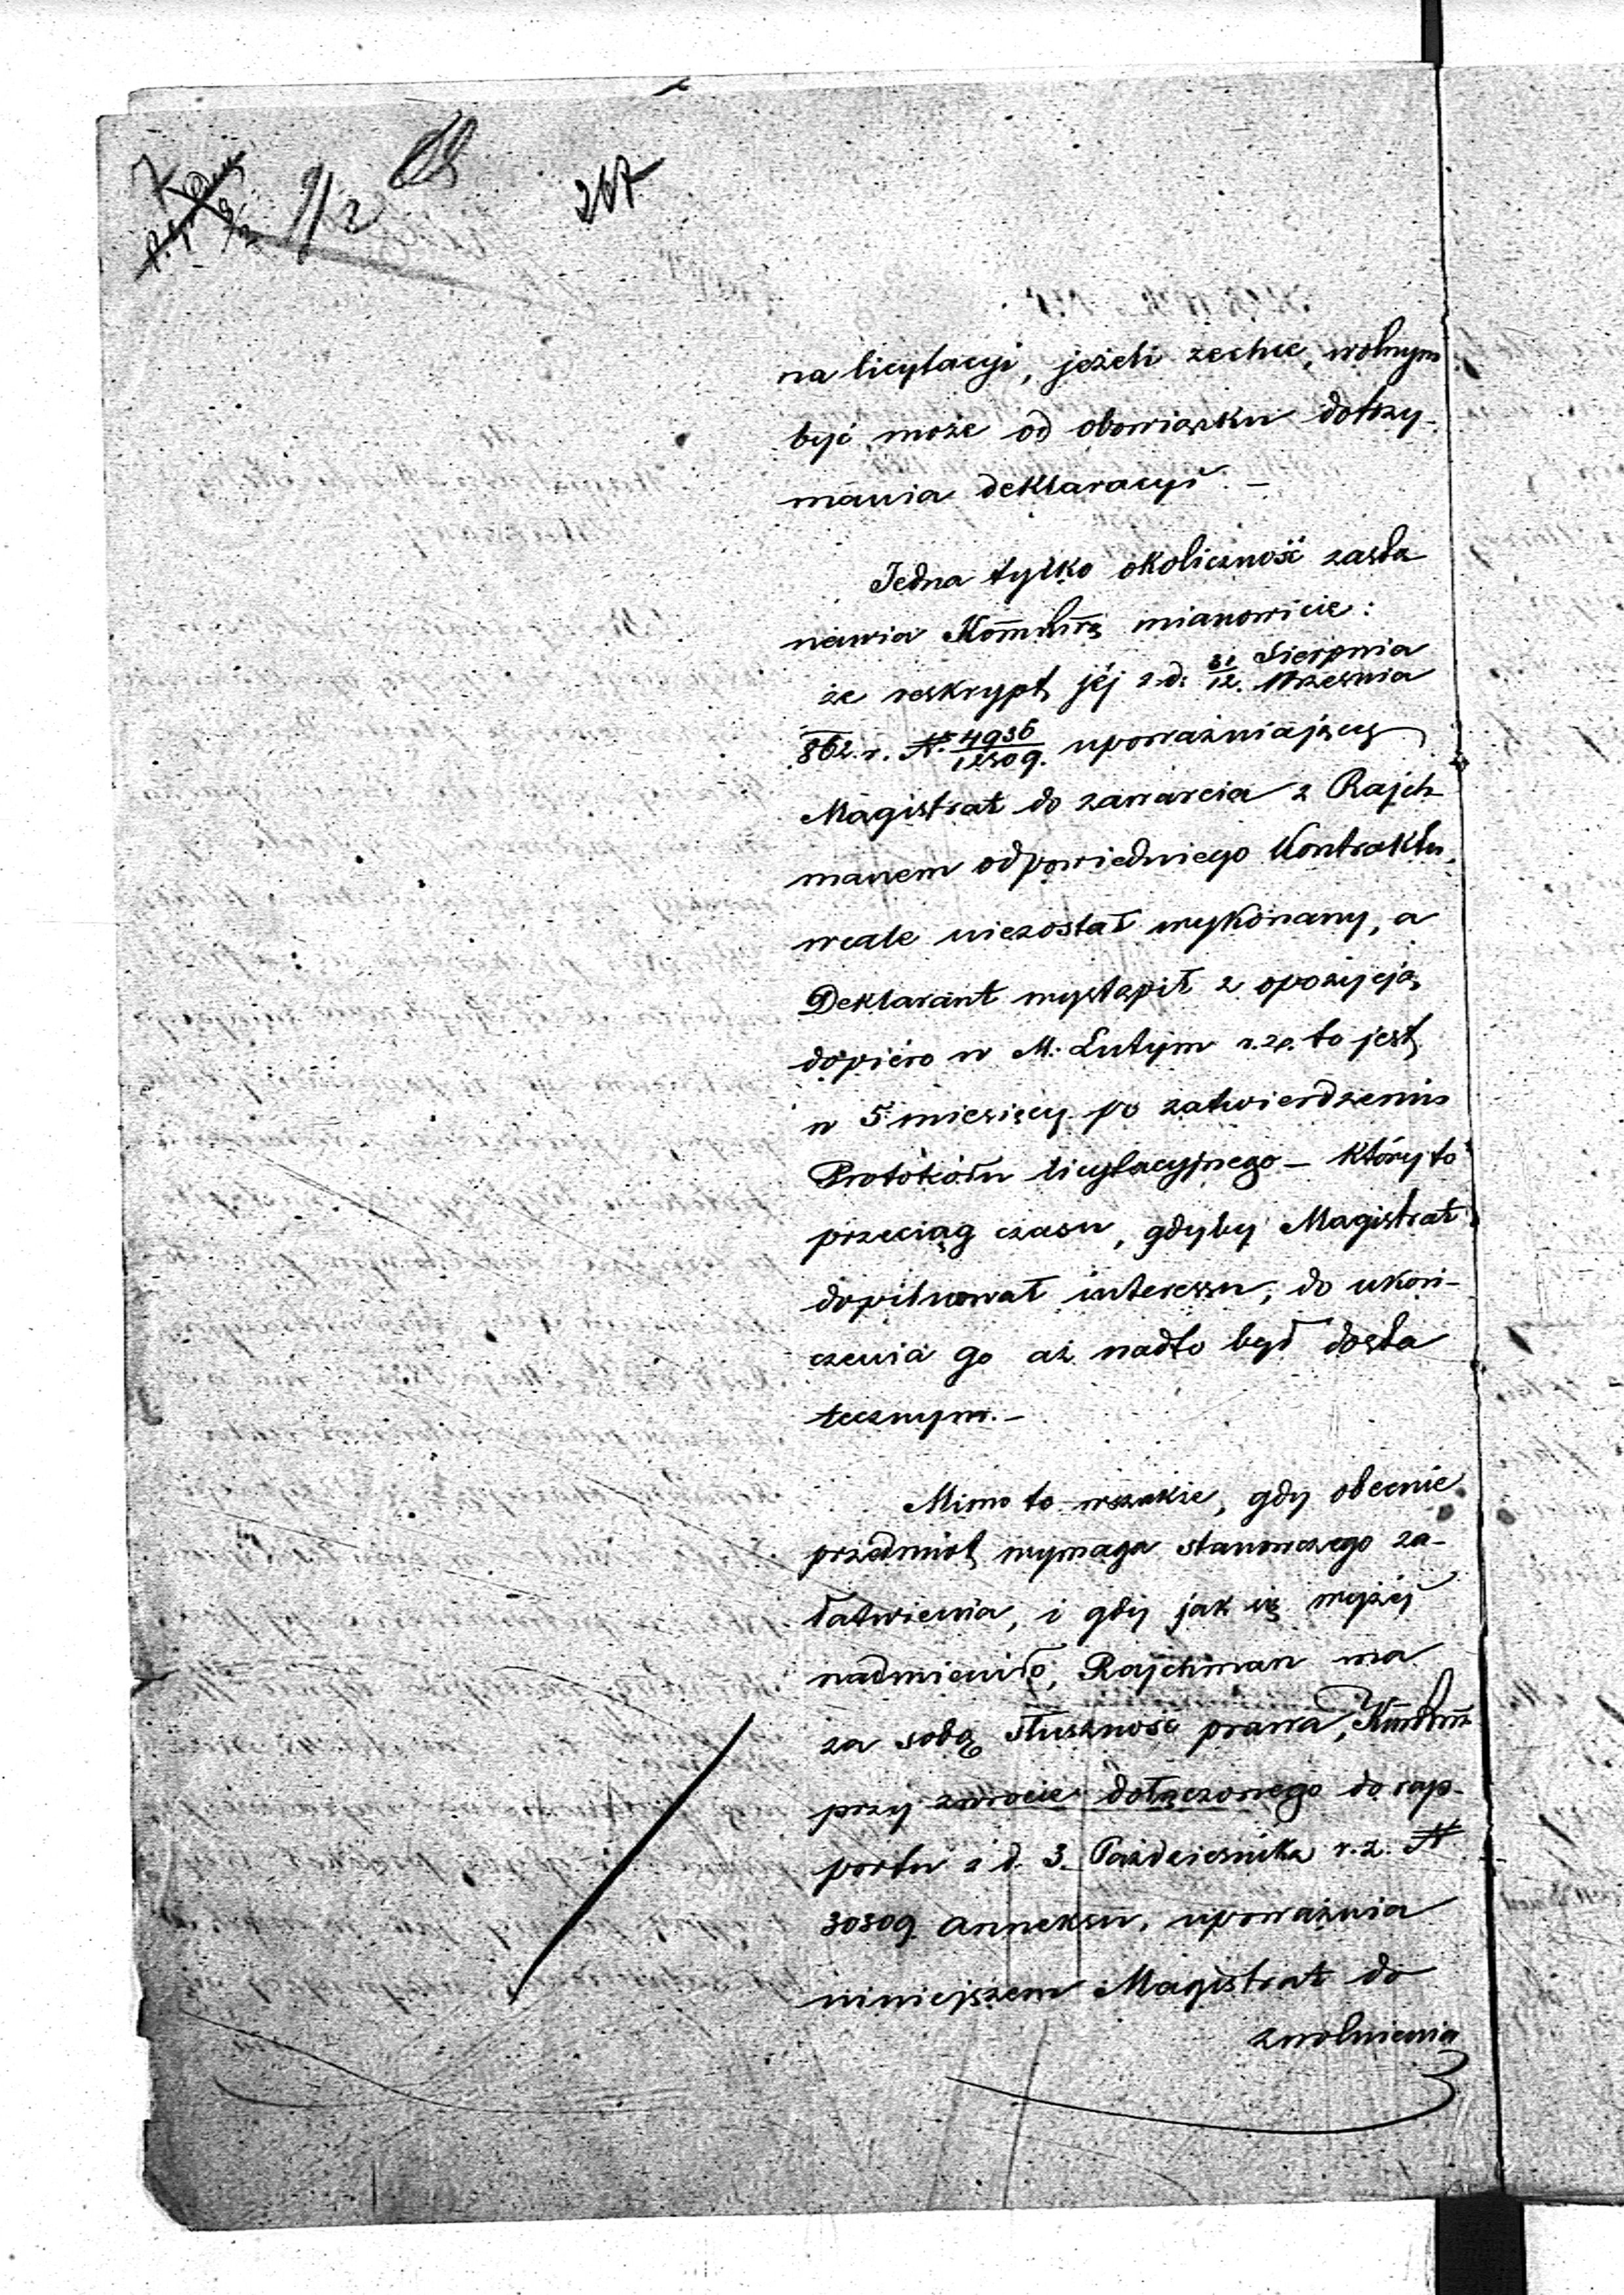 267
na licytacyi, jeżeli zechce, wolnym
być może od obowiązku dotrzy-
mania deklaracyi. –
Jedna tylko okoliczność zasta
nawia mianowicie:
że reskrypt jéj z d. 31/12. Sierpnia/Września
862. r. N. 4936/12309. upoważniający
Magistrat do zawarcia z Rajch
manem odpowiedniego Kontraktu,
wcale niezostał wykonany, a
Deklarant wystąpił z opozycją
dopiéro w M. Lutym r. z. to jest
w 5 miesięcy po zatwierdzeniu
Protokółu licytacyjnego – który to
przeciąg czasu, gdyby Magistrat
dopilnował interessu, do ukoń-
czenia go aż nadto był dosta
tecznym. –
Mimo to wszakże, gdy obecnie
przedmiot wymaga stanowczego za-
łatwienia, i gdy jak się wyżéj
nadmieniło, Rajchman ma
za sobą słuszność prawa,
przy zwrocie dołączonego do rap-
portu z d. 3 Października r. z. N
30309 anneksu, upoważnia
niniejszem Magistrat do
zwolnienia